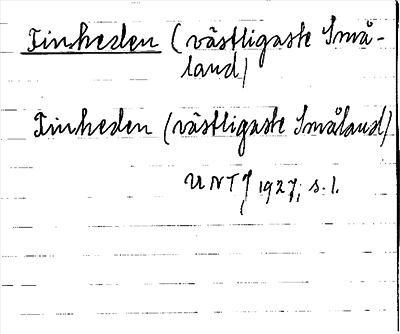 Finheden (västligaste Små-
land)
Finheden (västligaste Småland)
UNTf 1927, s. 1.